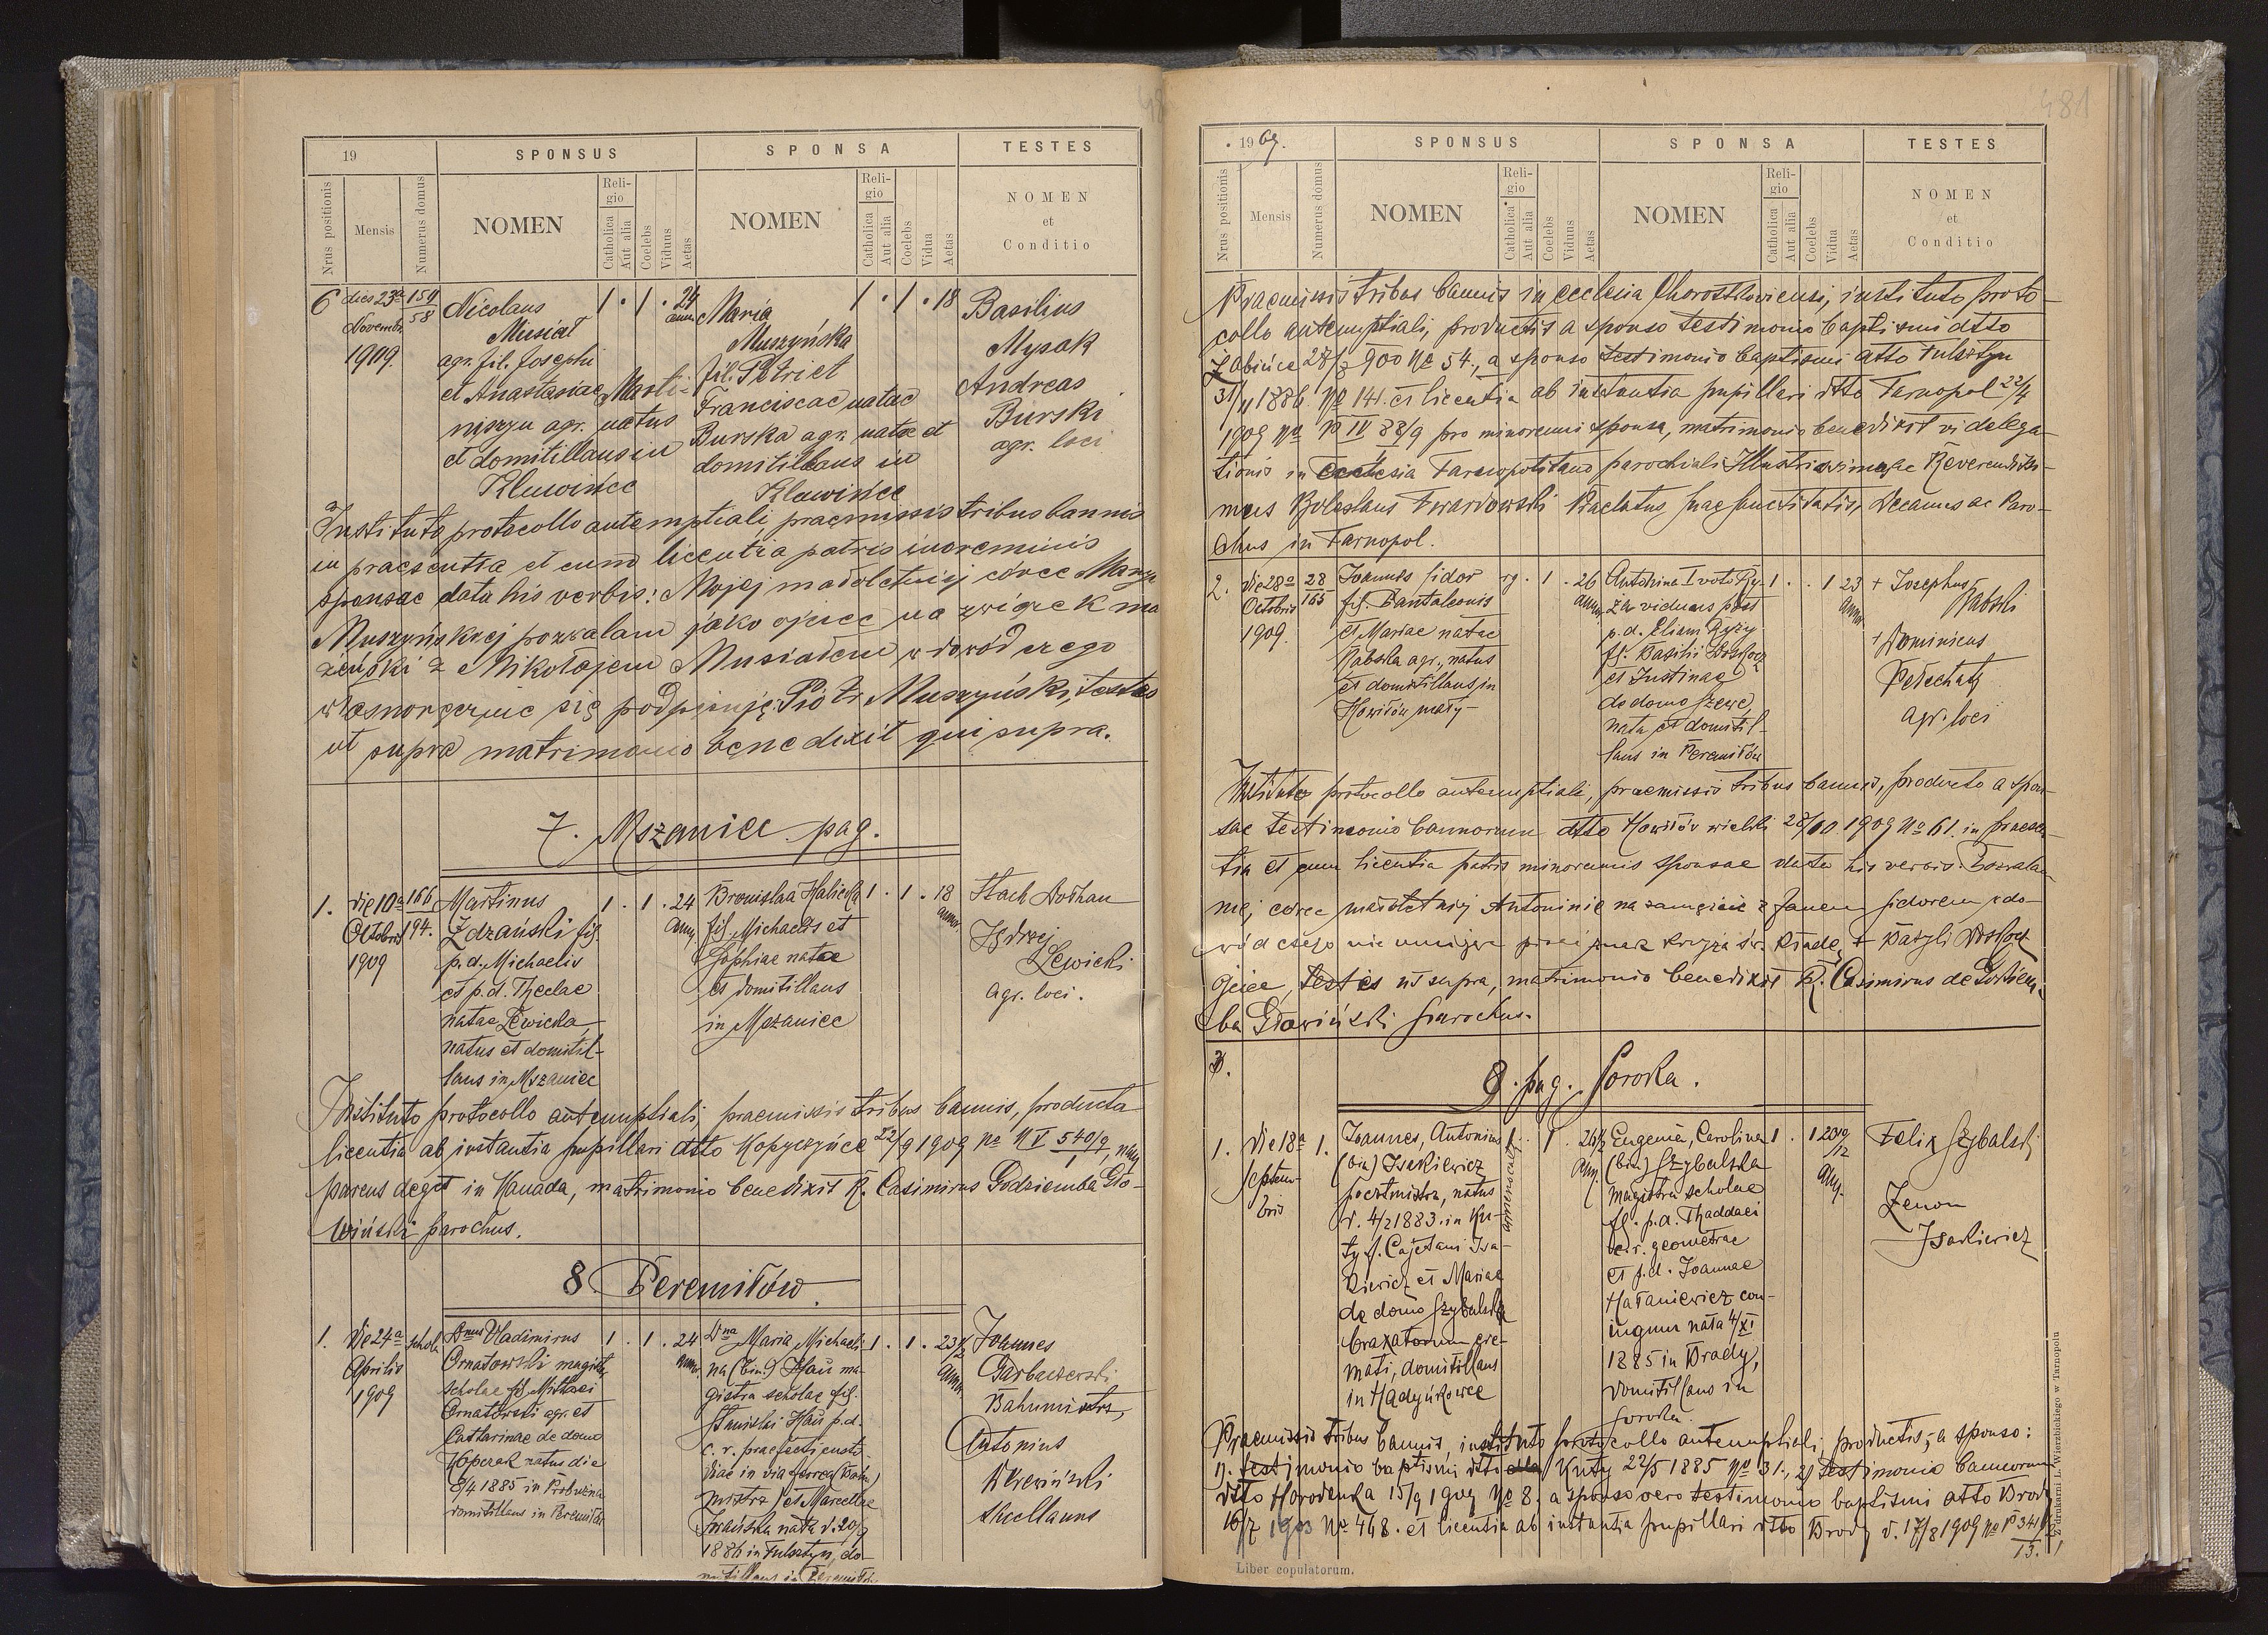 19
SPONSUS
SPONSA
TESTES
Nrus positionis
Mensis
Numerus domus
NOMEN
Religio
Catholica
Aut alia
Coelebs
Viduus
Aetas
NOMEN
Religio
Catholica
Aut alia
Coelebs
Vidua
Aetas
NOMEN
et
Conditio
6 dies 23a Novembr. 1909. 58
Nicolaus
Musiał
agr. fil. Josephi
et Anastasiae Marti-
niszyn agr. natus
et domitillans in
Kluwińce
1 . 1 . 24 ann.
Maria
Muszyńska
fil. Petri et
Franciscae natae
Burska agr. nata et
domitillans in
Kluwińce
1 . 1 . 18
Basilius
Mysak
Andreas
Burski
agr. loci
Instituto protocollo antenuptiali, praemissis tribus bannis
in praesentia et cum licentia patris minorennis
sponsae data his verbis: Mojej małoletniej córce Maryi
Muszyńskiej pozwalam jako ojciec na związek mał
żeński z Mikołajem Musiałem w dowód czego
własnoręcznie się podpisuję: Piotr Muszyński, testes
ut supra matrimonio benedixit qui supra.
7. Mszaniec pag.
1. Die 10a Octobris 1909 166 194.
Martinus
Zdzański fil.
p.d. Michaelis
et p.d. Theclae
natae Lewicka
natus et domitil-
lans in Mszaniec
1 . 1 . 24 ann.
Bronislaa Halicka
fil. Michaelis et
Sophiae natae
et domitillans
in Mszaniec
1 . 1 . 18 annor.
Stach Dołhan
Jędrzej
Lewicki
agr. loci.
Instituto protocollo antenuptiali, praemissis tribus bannis, producta
licentia ab instantia pupillari dtto Kopyczyńce 22/9 1909 No 540/9, nam
parens deget in Kanada, matrimonio benedixit R. Casimirus Godziemba Gło-
wiński parochus.
8. Peremiłów.
1. Die 24a Aprilis 1909 schola
Dnus Vladimirus
Ornatowski magister
scholae fil. Mithaei
Ornatowski agr. et
Catharinae de domo
Kopczak natus die
8/4 1885 in Probużna
domitillans in Peremiłów
1 . 1 . 24 ann.
Dna Maria Michaeli-
na (bin.) Hau ma-
gistra scholae fil.
Stanislai Hau p.d.
c. r. praefecti custo-
diae in via ferrea (Bahn
mistrz) et Marcellae
nata d. 20/9
1886 in Fulsztyn, do-
mitillans in Peremiłów
1 . 1 . 23 1/2 annor.
Joannes
Garbaczewski
Bahnmistrz,
Antonius
19 09.
SPONSUS
SPONSA
TESTES
Nrus positionis
Mensis
Numerus domus
NOMEN
Religio
Catholica
Aut alia
Coelebs
Viduus
Aetas
NOMEN
Religio
Catholica
Aut alia
Coelebs
Vidua
Aetas
NOMEN
et
Conditio
481
Praemissis tribus bannis in ecclesia Chorostkoviensi, instituto proto-
collo antenuptiali, productis a sponso testimonio baptismi dtto
Żabińce 900 No 54., a sponso testimonio baptismi dtto Fulsztyn
1886 No 141. et licentia ab instantia pupillari dtto Tarnopol 22/4
1909 No P IV 88/9 pro minorenni sponsa, matrimonio benedixit vi delega-
tionis in Ecclesia Tarnopolitana parochiali Illustrissimus ac Reverendissi-
mus Boleslaus Twardowski Praelatus Suae Sanctitatis, Decanus ac Paro-
chus in Tarnopol.
2. Die 28a Octobris 1909. 28 165
Joannes Sidor
fil. Pantaleonis
et Mariae natae
Babska agr., natus
et domitillans in
Howiłów mały
rg . 1 . 26 ann.
Antonina I voto Ry-
ży viduens post
p.d. Eliam Ryży
fil. Basilii Doskocz
et Justinae
de domo Szewc,
nata et domitil-
lans in Peremiłów
1 . . 1 23 annor.
+ Josephus
Babski
+ Dominicus
Pełechaty
agr. loci
Instituto protocollo antenuptiali, praemissis tribus bannis, producto a spon-
sae testimonio bannorum dtto Howiłów wielki 28/10 1909 No 61. in praesen-
tia et cum licentia patris minorennis sponsae data his verbis: Pozwala-
niej córce małoletniej Antoninie na zamęście z Janem Sidorem w do-
wód czego nie umiejąc pisać znak krzyża św. kładę + Bazyli Doskocz
ojciec, testes ut supra, matrimonio benedixit R. Casimirus de Godziem-
ba Głowiński parochus.
3.
9. pag. Soroka.
1. Die 18a Septem-
bris 1.
Joannes, Antonius
(bin) Isakiewicz
pocztmistrz, natus
d. 4/2 1883 in Ku-
ty f. Cajetani Isa-
kiewicz et Mariae
de domo Szybalska
braxatorum cre-
mati, domitillans
in Hadyńkowce
1 . 26 1/2 ann.
Eugenia, Carolina
(bin) Szybalska
magistra scholae
fil. p.d. Thaddaei
c. r. geometrae
et p.d. Joannae
Hataniewicz con-
iugum nata 4/XI
1885 in Brody,
domitillans in
Soroka.
1 . 1 23 10/12 ann.
Felix Szybalski
Zenon
Isakiewicz
Praemissis tribus bannis, instituto protocollo antenuptiali, productis, a sponso:
1). testimonio baptismi dtto Kuty 22/5 1885 No 31., 2) testimonio bannorum
dtto Horodenka 15/9 1909 No 8. a sponso vero testimonio baptismi dtto Brody
16/7 1903 No 448. et licentia ab instantia pupillari dtto Brody d. 17/8 1909 No P 341/
13.
Liber copulatorum.
Z drukarni L. Wierzbickiego w Tarnopolu